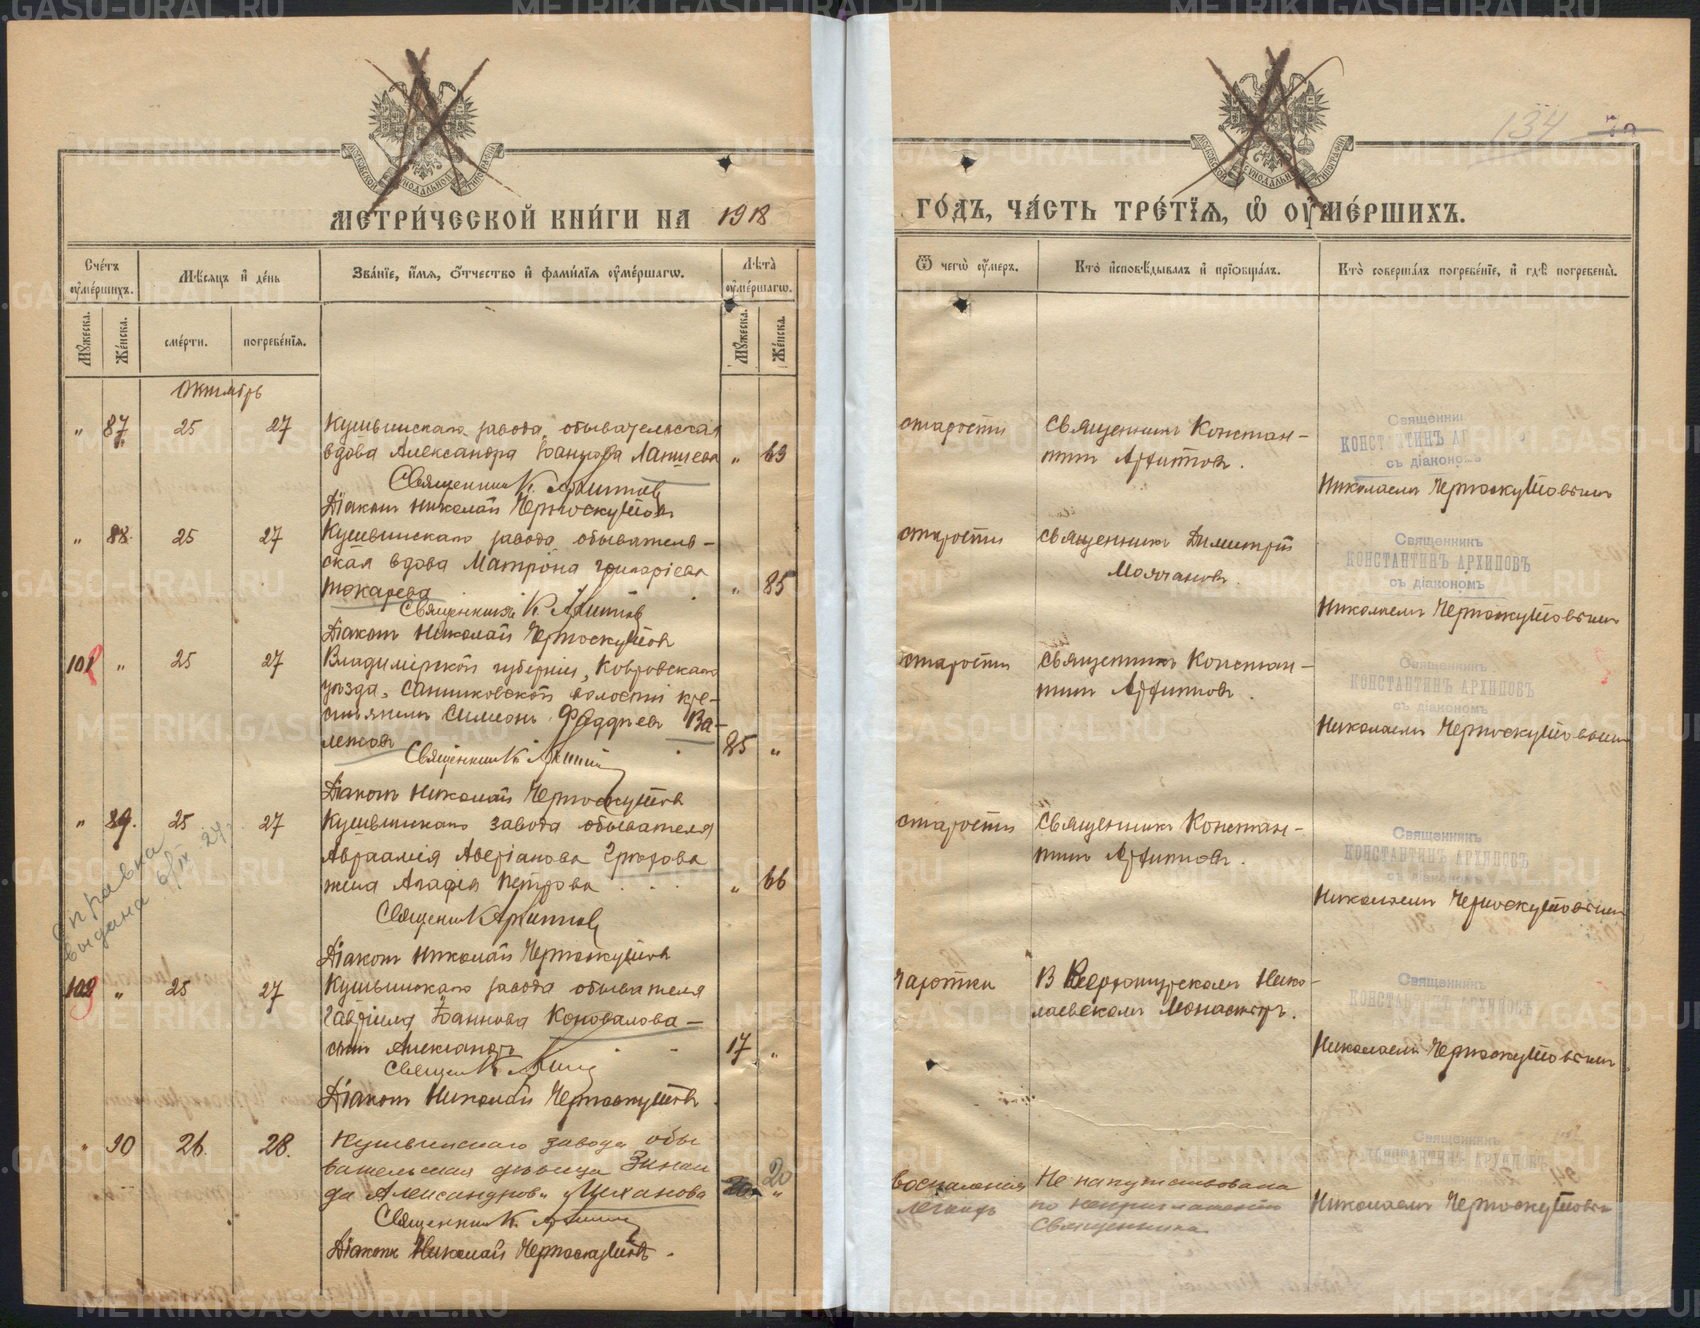 134
МЕТРИ́ЧЕСКОЙ КНИ́ГИ НА 1918
ГО́ДЪ, ЧА́СТЬ ТРЕ́ТЇѦ, Ѡ҆ ОУ҆МЕ́РШИХЪ.
Сче́тъ оу҆ме́ршихъ.
Мѣ́сѧцъ и҆ де́нь
Зва́нїе, и҆́мѧ, ѻ҆́тчество и҆ фами́лїѧ оу҆ме́ршагѡ.
Лѣ́та оу҆ме́ршагѡ.
Ѿ чегѡ̀ оу҆́меръ.
Кто̀ и҆сповѣ́дывалъ и҆ прїѡбща́лъ.
Кто̀ соверша́лъ погребе́нїе, и҆ гдѣ̀ погребены̀.
Мꙋ́жеска.
Же́нска.
сме́рти.
погребе́нїѧ.
Мꙋ́жеска.
Же́нска.
Октябрь
" 87 25 27
Кушвинскаго завода, обывательская
вдова Александра Іоаннова Лапшева " 69
Священник К. Архипов
Діаконъ Николай Черноскутов
старости
Священникъ Констан-
тинъ Архиповъ.
Священник
КОНСТАНТИНЪ АР
съ діаконо
Николаемъ Черноскутовымъ
" 88 25 27
Кушвинскаго завода обыватель-
ская вдова Матрона Григоріева
Токарева " 85
Священникъ К. Архипов
Діаконъ Николай Черноскутов
старости
священникъ Димитрій
Молчановъ.
Священникъ
КОНСТАНТИНЪ АРХИПОВЪ
съ діакономъ
Николаемъ Черноскутовымъ
101 " 25 27
Владимірской губерніи, Ковровскаго
уѣзда, Санниковской волости кре-
стьянинъ Симеонъ Фаддѣевъ Ва-
ленков 85 "
Священник К. Архипов
Діаконъ Николай Черноскутов
старости
священникъ Констан-
тинъ Архиповъ.
Священникъ
КОНСТАНТИНЪ АРХИПОВЪ
съ діакономъ
Николаемъ Черноскутовымъ
" 89. 25 27
Кушвинскаго завода обывателя
Авраамія Аверіанова
жена Агафія Петрова " 66
Священник К. Архипов
Діаконъ Николай Черноскутов
Справка
выдана
старости
Священникъ Констан-
тинъ Архиповъ.
Священникъ
КОНСТАНТИНЪ АРХИПОВЪ
съ діакономъ
Николаемъ Черноскутовымъ
102 " 25 27
Кушвинскаго завода обывателя
Гавріила Іоаннова Коновалова-
сынъ Александръ 17 "
Священ К. Архипов
Діаконъ Николай Черноскутовъ
чахотки
В Верхотурскомъ Нико-
лаевскомъ Монастыр.
Священникъ
КОНСТАНТИНЪ АРХИПОВЪ
Николаемъ Черноскутовымъ
" 90 26. 28.
Кушвинскаго завода обы
вательская дѣвица Зинаи
да Александров. Цеханова 20 "
Священник К. Архипов
Діаконъ Николай Черноскутовъ.
воспаленія
легкихъ
Не напутствована
по неприглашенію
Священника
Священникъ
КОНСТАНТИНЪ АРХИПОВЪ
Николаемъ Черноскутовы